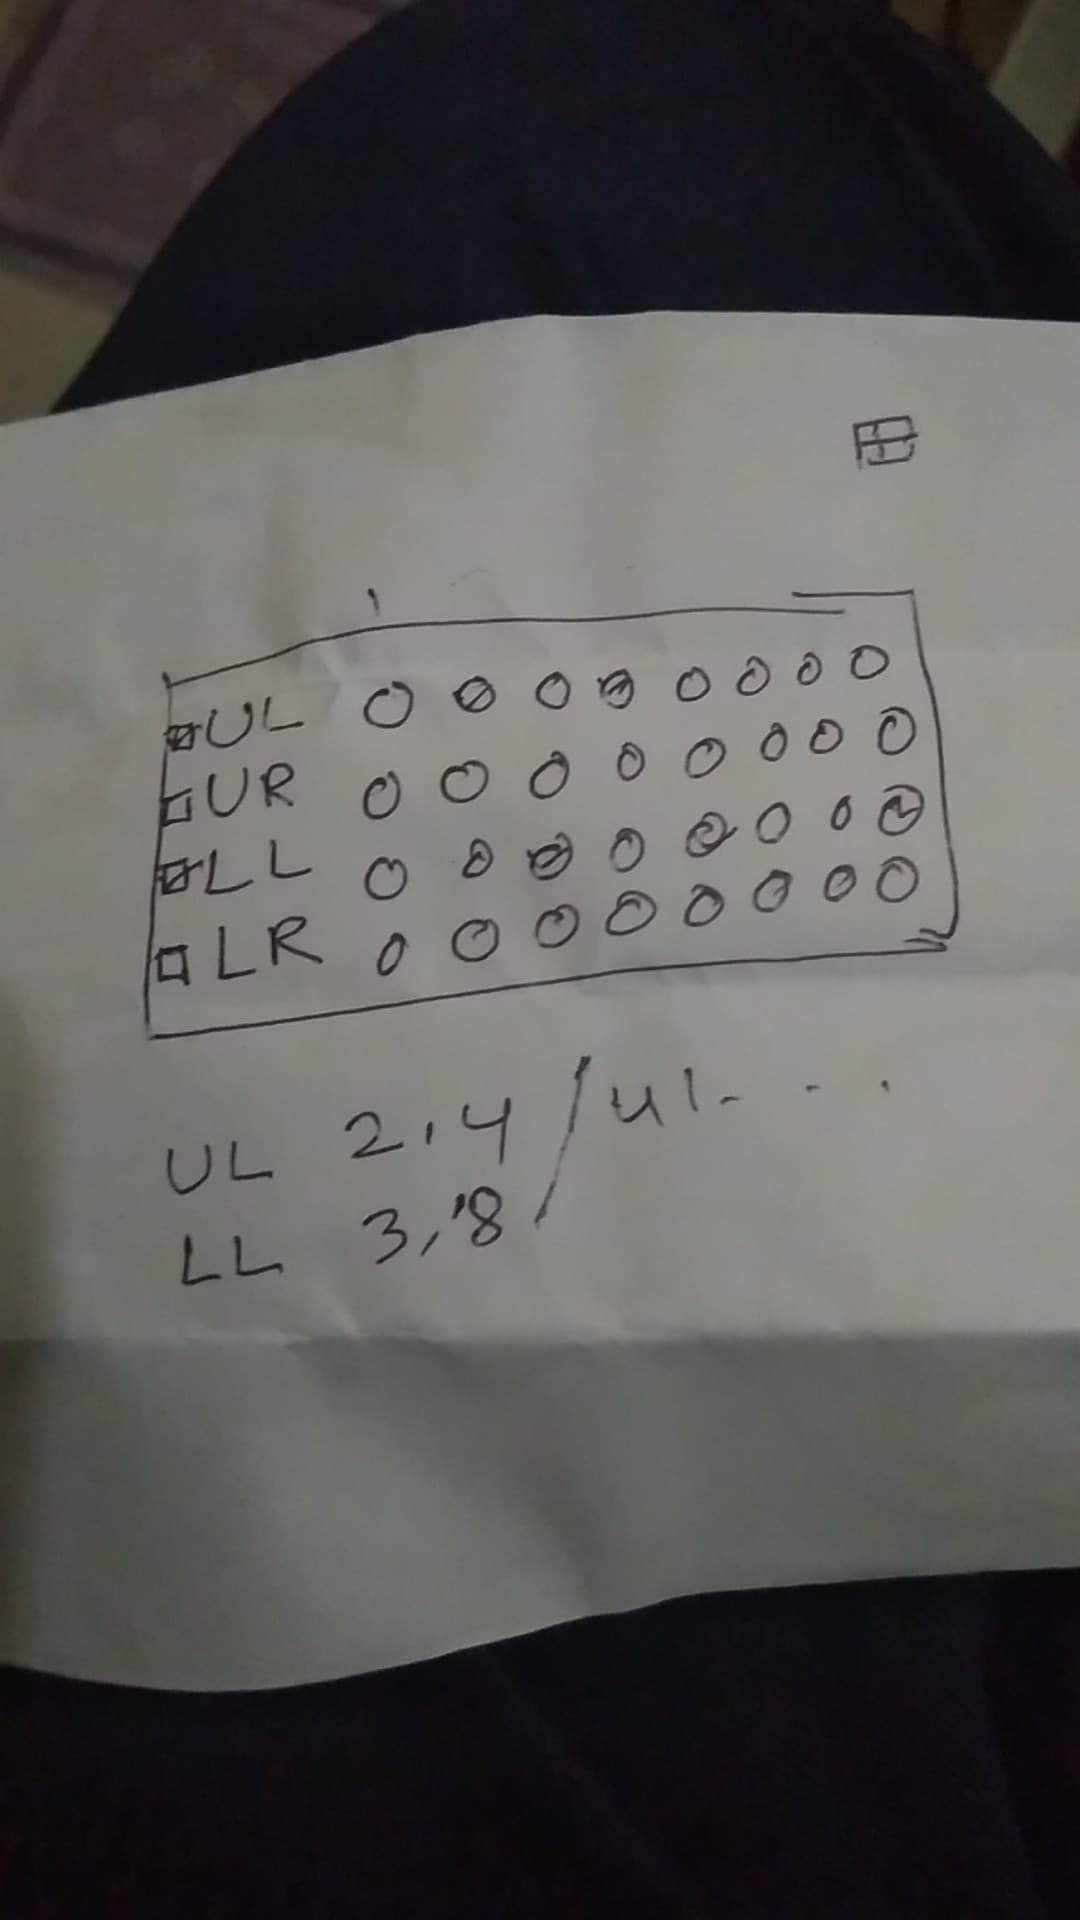 UL
UR
LL
LR
UL 2,4 / UL- - .
LL 3,8